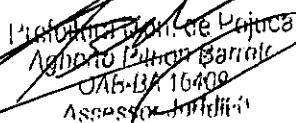 Prefeitura Mun. de Pojuca
Agberto Pithon Barreto
OAB-BA 16409
Assessor Jurídico